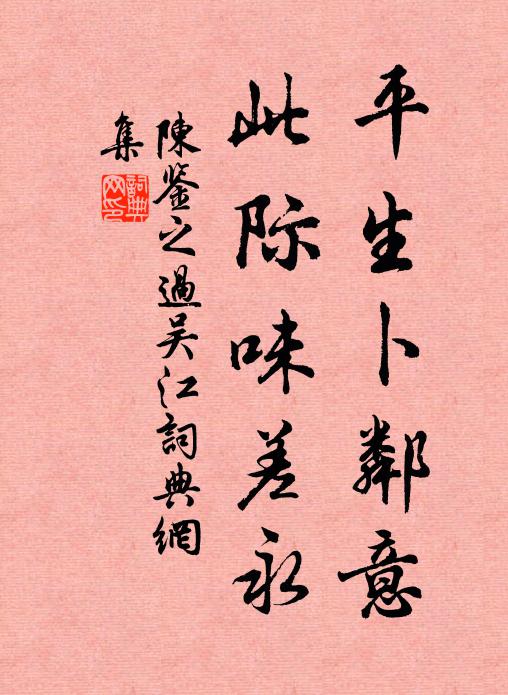 平生卜鄰意
此际味差永
陳鉴之過吴江詞典網
集
詞典网印